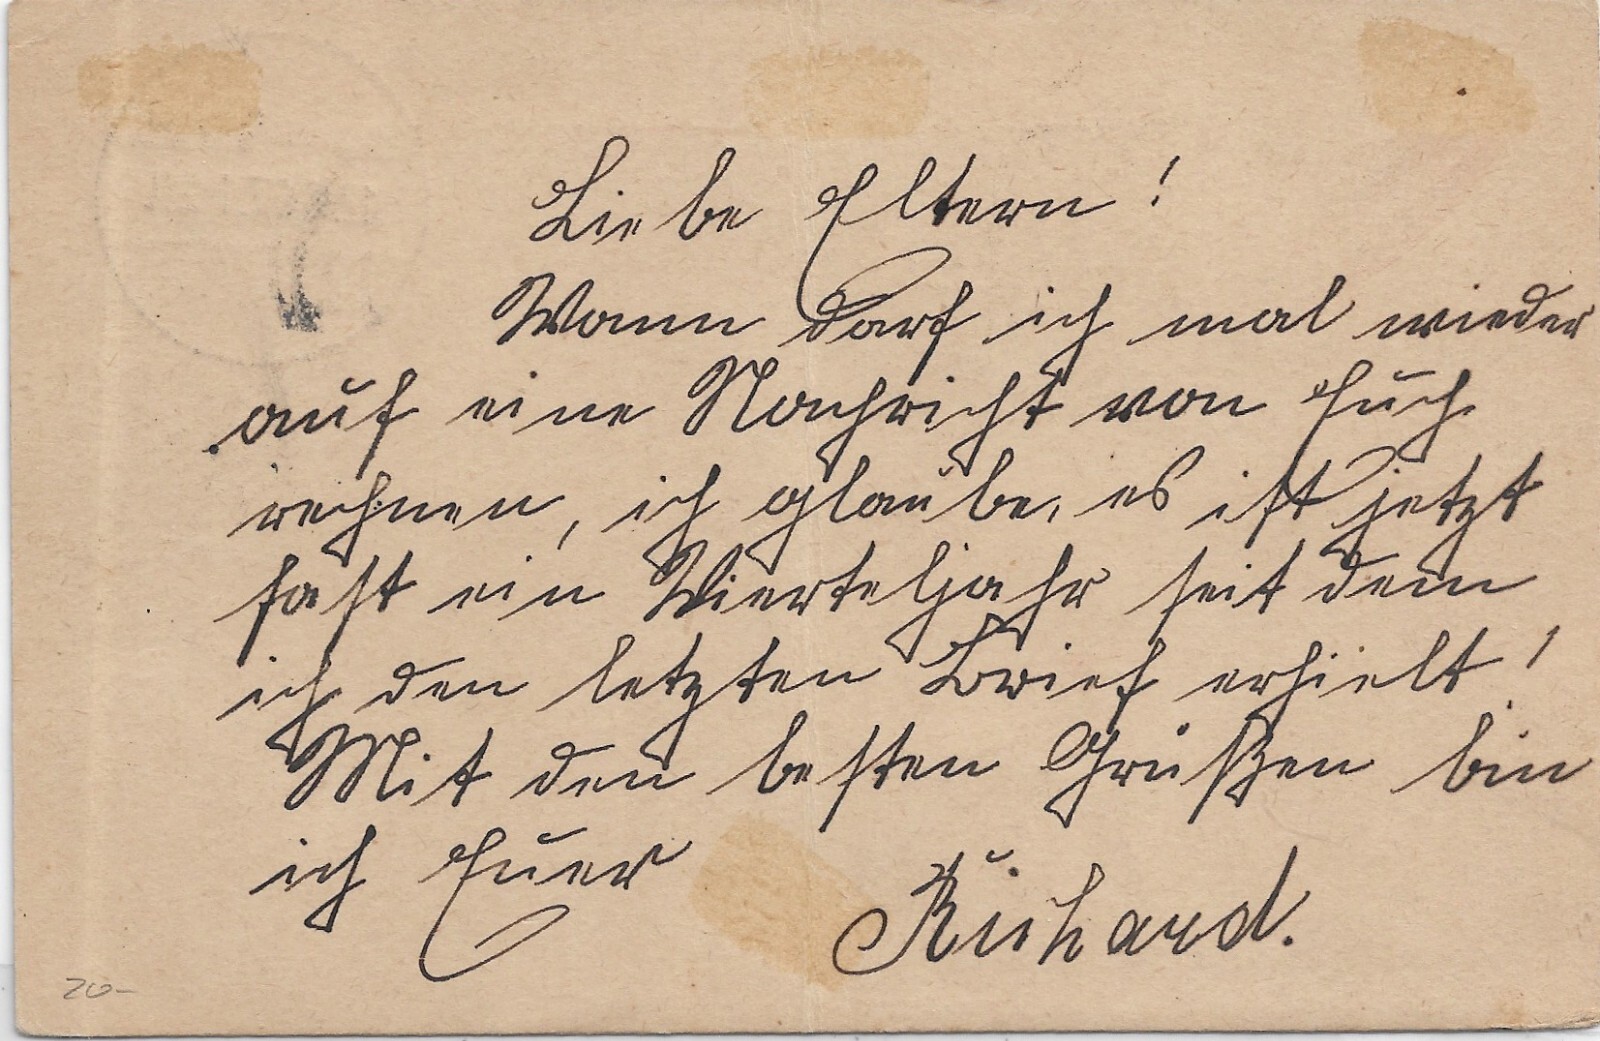 Liebe Eltern!
Wann darf ich mal wieder
auf eine Nachricht von Euch
rechnen, ich glaube, es ist jetzt
fast ein Vierteljahr seit dem
ich den letzten Brief erhielt!
Mit den besten Grüßen bin
ich Euer
Richard.
20-